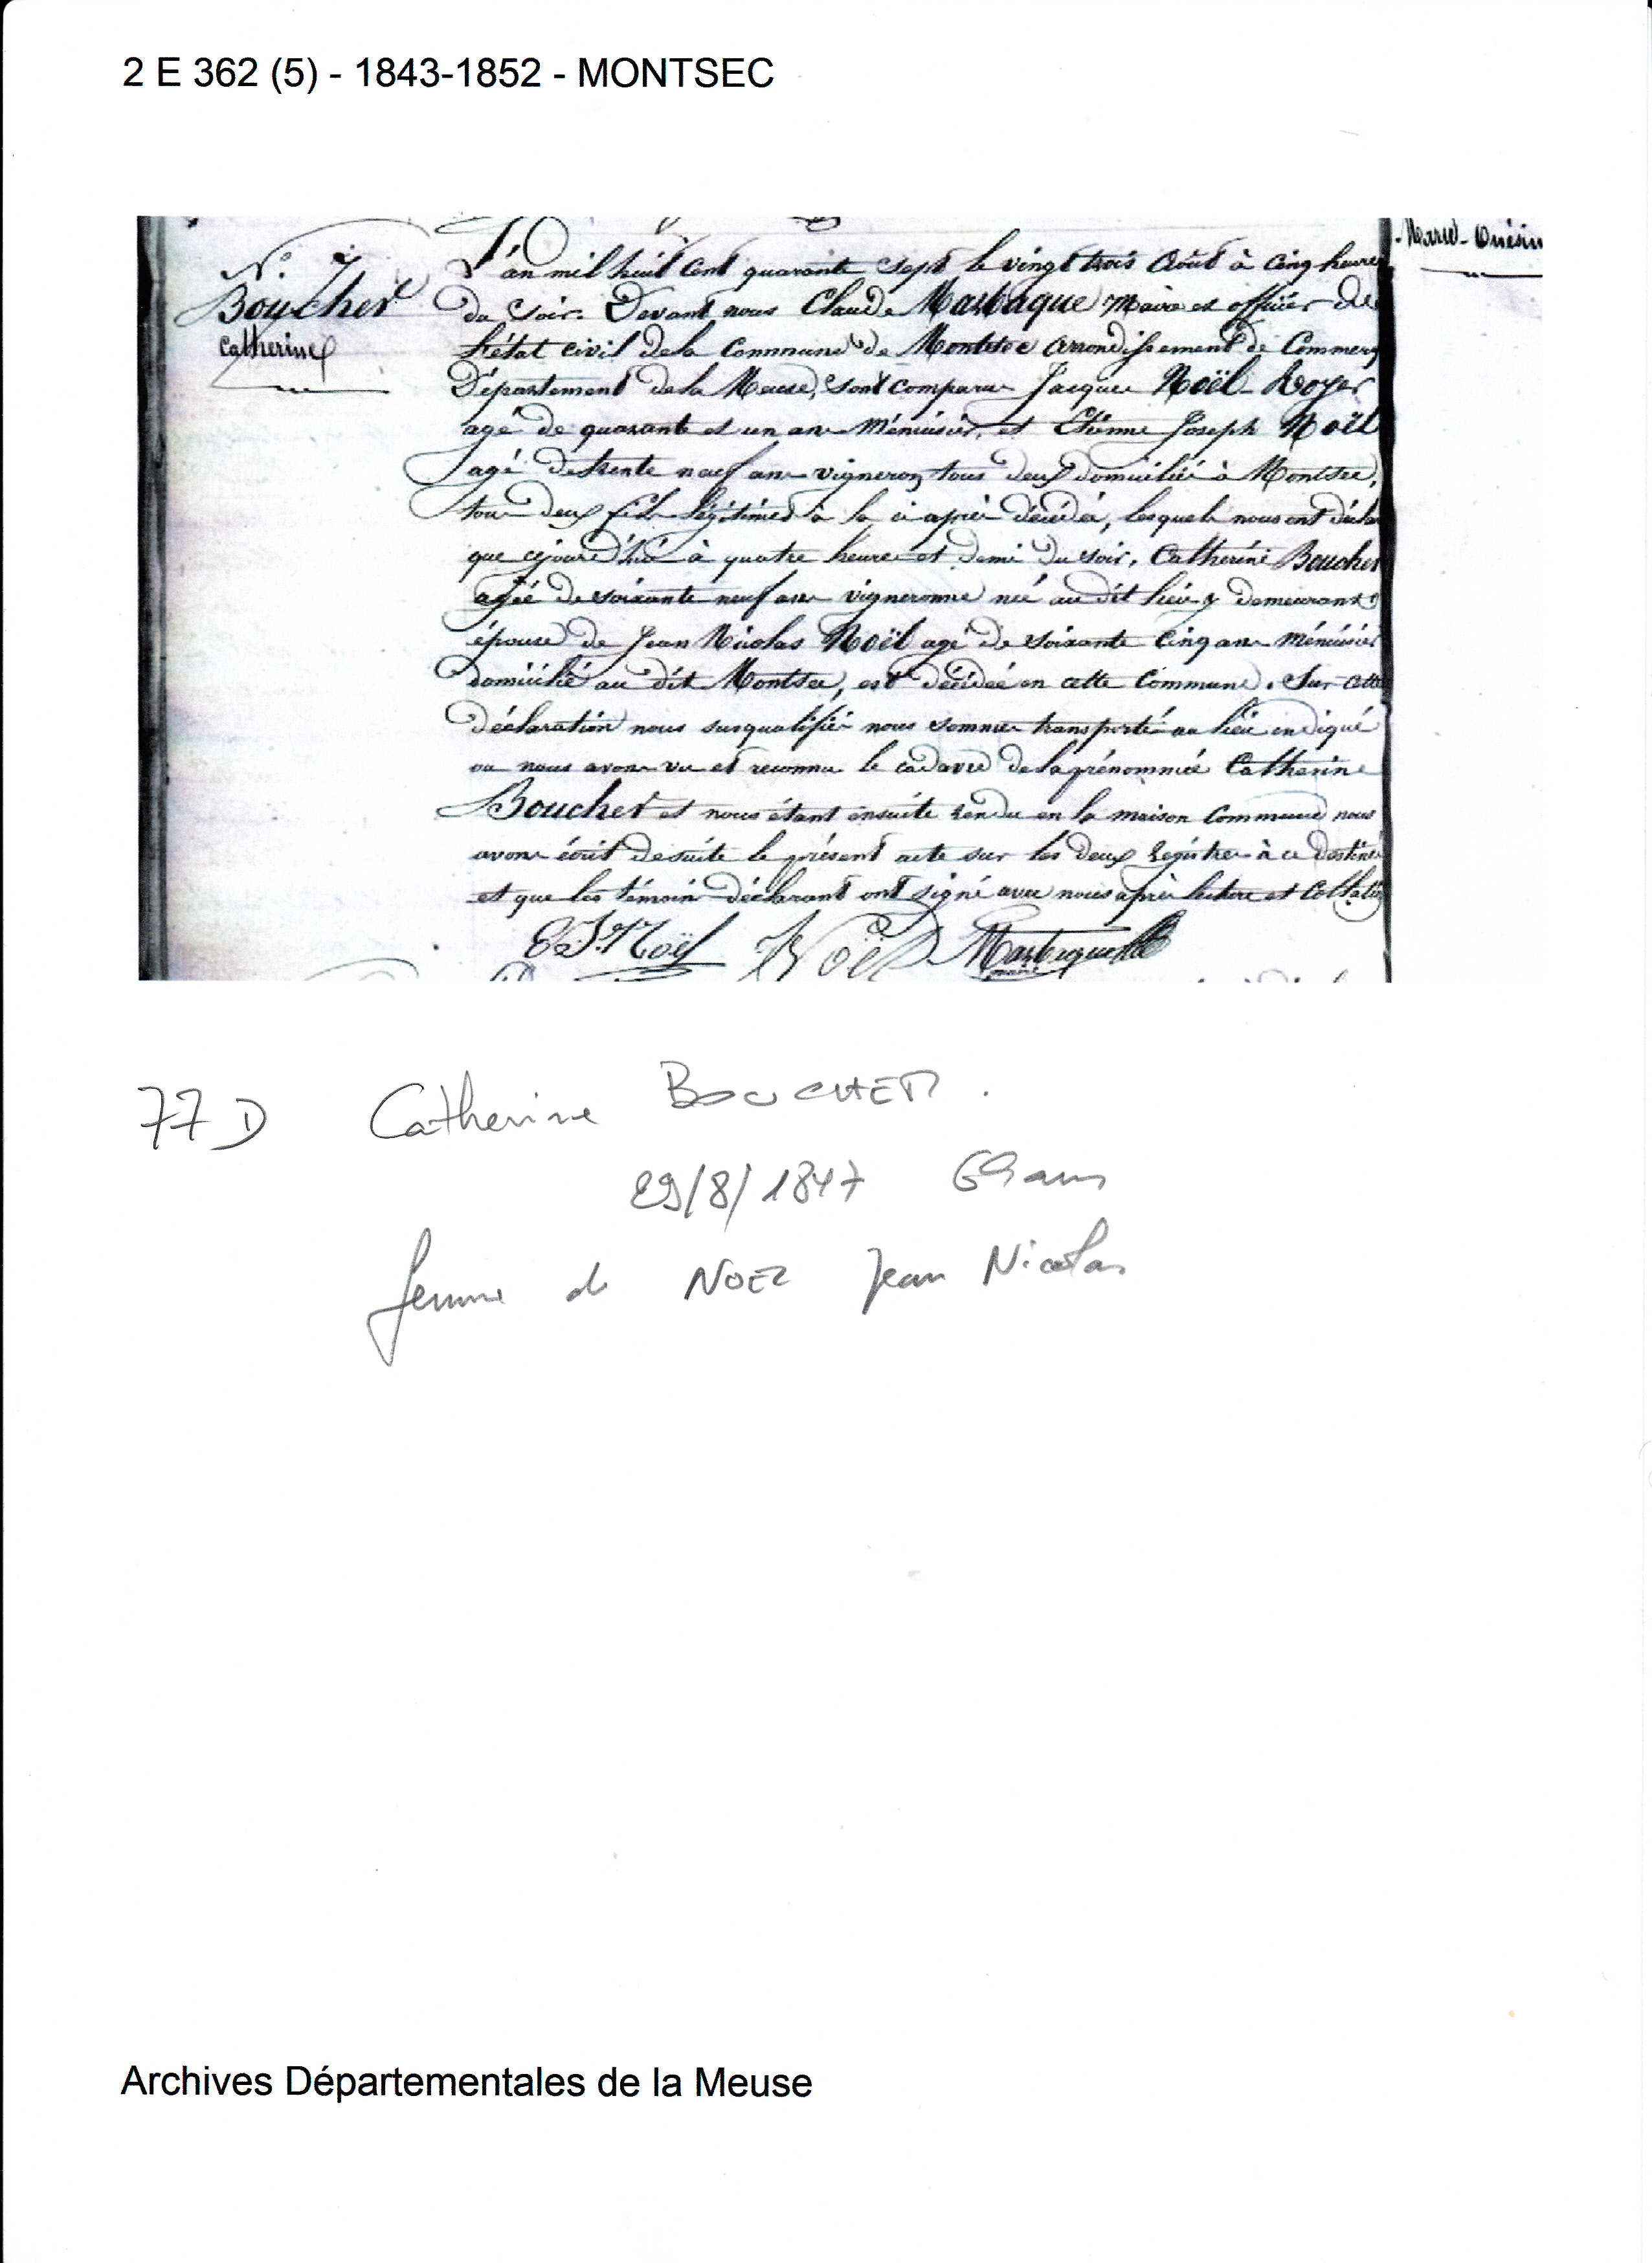 2 E 362 (5) - 1843-1852 - MONTSEC
N.° 7
Boucher
Catherine
L'an mil huit cent quarante sept le vingt trois Août à cinq heures
du soir. Devant nous Claude Mastaque Maire et officier de
l'état civil de la Commune de Montsec arrondissement de Commercy
Département de la Meuse, sont comparu Jacque Noël-Royer
agé de quarante et un ans Ménuisier, et Etienne Joseph Noël
agé de trente neuf ans vigneron tous deux domicilié à Montsec,
tous deux fils légitimes à la ci après décédée, lesquels nous ont décla
que cejourd'hui à quatre heures et demi du soir, Catherine Boucher
agée de soixante neuf ans vigneronne née au dit lieu y demeurant
épouse de Jean Nicolas Noël agé de soixante cinq ans Ménuisier
domicilié au dit Montsec, est décédée en cette Commune. Sur cette
déclaration nous susqualifié nous sommes transporté au lieu indiqué
ou nous avons vu et reconnu le cadavre de la prénommée Catherine
Boucher et nous étant ensuite rendu en la maison Commune nous
avons écrit de suite le présent acte sur les deux Registres à ce destiné
et que les témoins déclarant ont signé avec nous après lecture et Collation
E J. Noël Noël
Marie-
77 D Catherine BOUCHER.
29/8/1847 69 ans
femme d NOEL Jean Nicolas
Archives Départementales de la Meuse